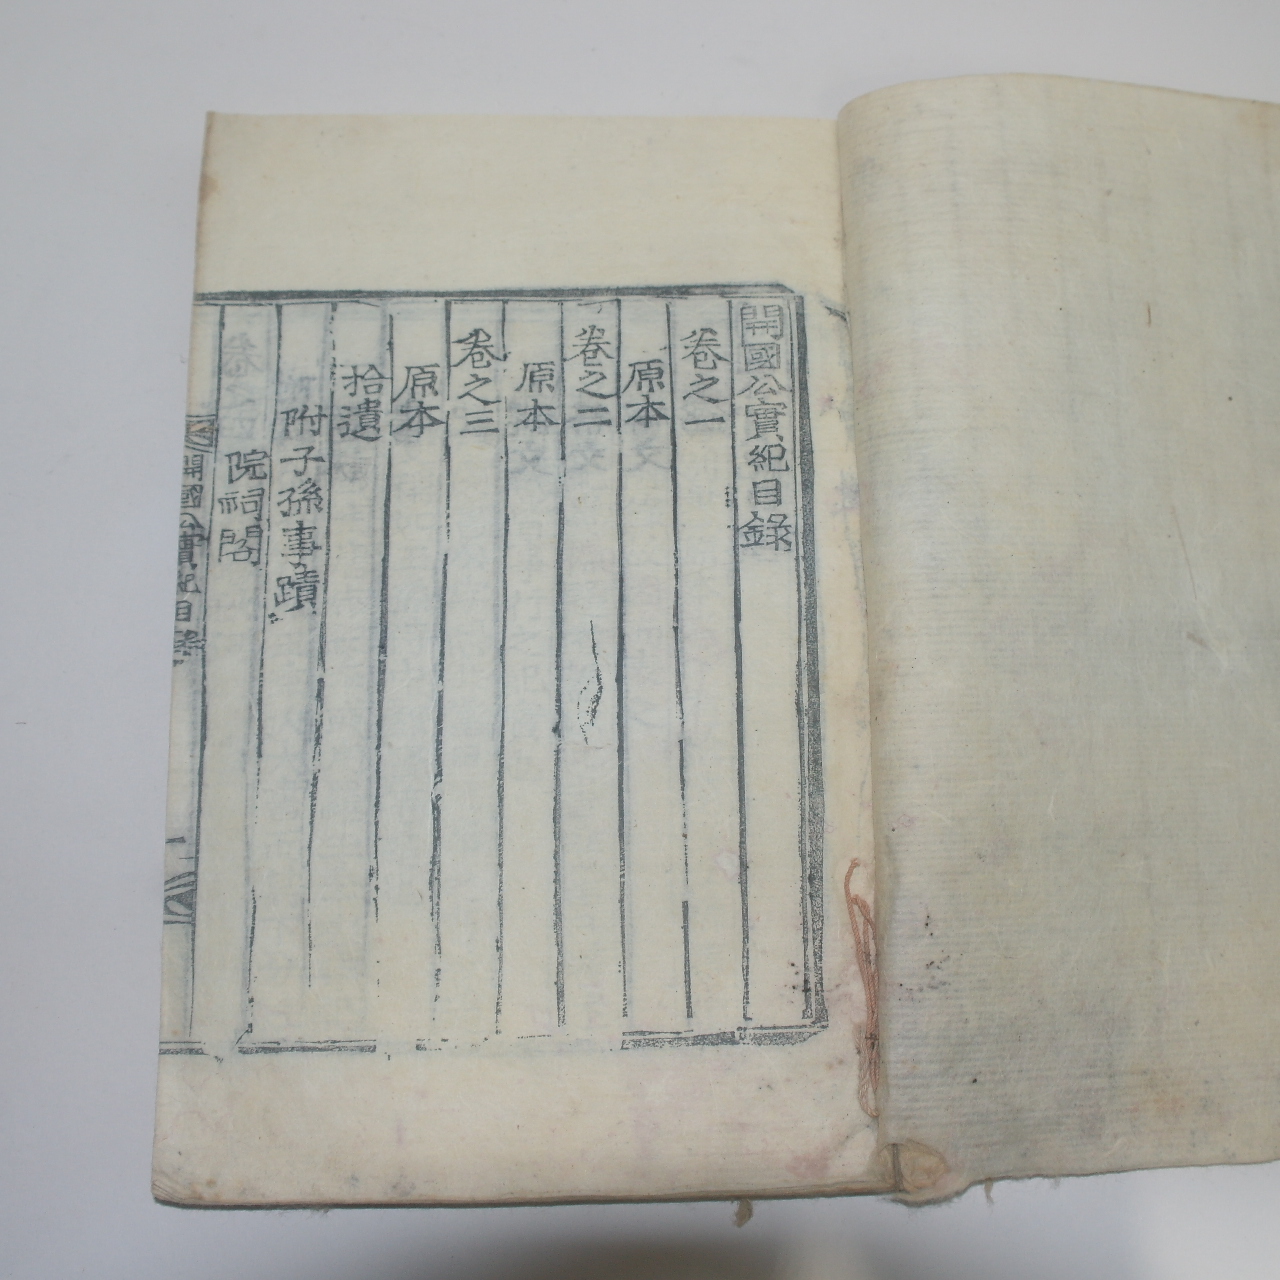 開國公實紀目錄
卷之一
原本
卷之二
原本
卷之三
原本
拾遺
附子孫事蹟
院祠閣
開國公實紀目